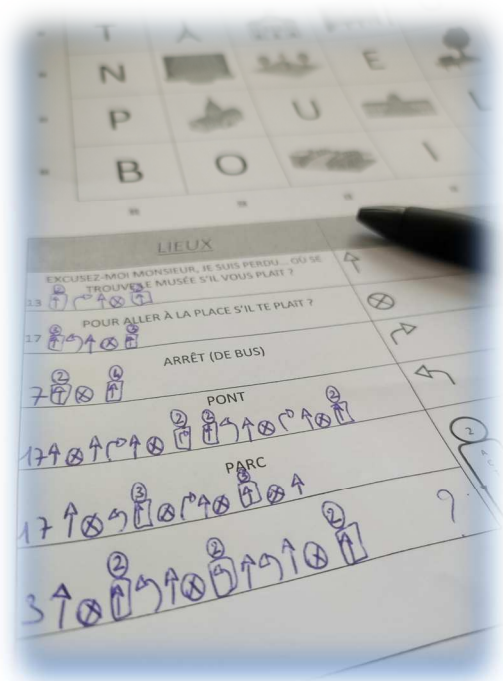 T
N E
P U
B O I
LIEUX
EXCUSEZ-MOI MONSIEUR, JE SUIS PERDU... OÙ SE
TROUVE LE MUSÉE S'IL VOUS PLAIT ?
13 ② ↑ ↱ ↑ ⊗
POUR ALLER À LA PLACE S'IL TE PLAIT ?
17 ↑ ↰ ↑ ⊗ ↑
ARRÊT (DE BUS)
7 ② ↑ ⊗ ④ ↑
PONT
17 ↑ ⊗ ↑ ↱ ↑ ⊗ ② ↱ ② ↑ ↰ ↑ ⊗ ↱ ↑ ⊗ ② ↑
PARC
17 ↑ ⊗ ↰ ③ ↑ ⊗ ↱ ↑ ⊗ ③ ↑ ⊗ ↑
3 ↑ ⊗ ② ↑ ↰ ↑ ⊗ ② ↰ ↑ ↰ ↑ ⊗ ② ↑ ?
2